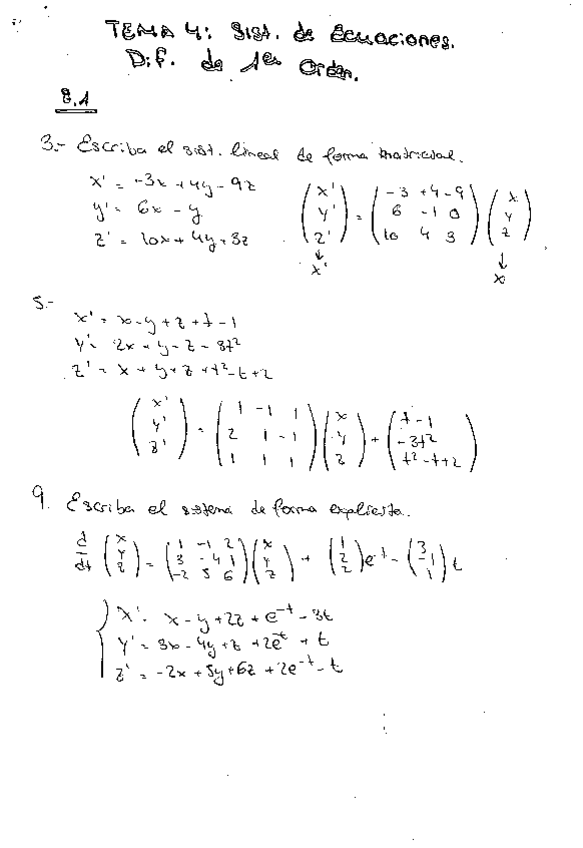 TEMA 4: Sist. de Ecuaciones.
Dif. de 1er Orden.
8.1
3.- Escriba el sist. lineal de forma matricial.
x' = -3x + 4y - 9z
y' = 6x - y
z' = 10x + 4y + 3z
(x' y' z') = (-3 +4 -9 / 6 -1 0 / 10 4 3) (x y z)
↓ x' ↓ x
5.-
x' = x - y + z + t - 1
y' = 2x + y - z - 3t²
z' = x + y + z + t² - t + 2
(x' y' z') = (1 -1 1 / 2 1 -1 / 1 1 1) (x y z) + (t - 1 / -3t² / t² - t + 2)
9. Escriba el sistema de forma explícita.
d/dt (x y z) = (1 -1 2 / 3 -4 1 / -2 5 6) (x y z) + (1 2 2) e^-t - (3 -1 1) t
x' = x - y + 2z + e^-t - 3t
y' = 3x - 4y + z + 2e^-t + t
z' = -2x + 5y + 6z + 2e^-t - t